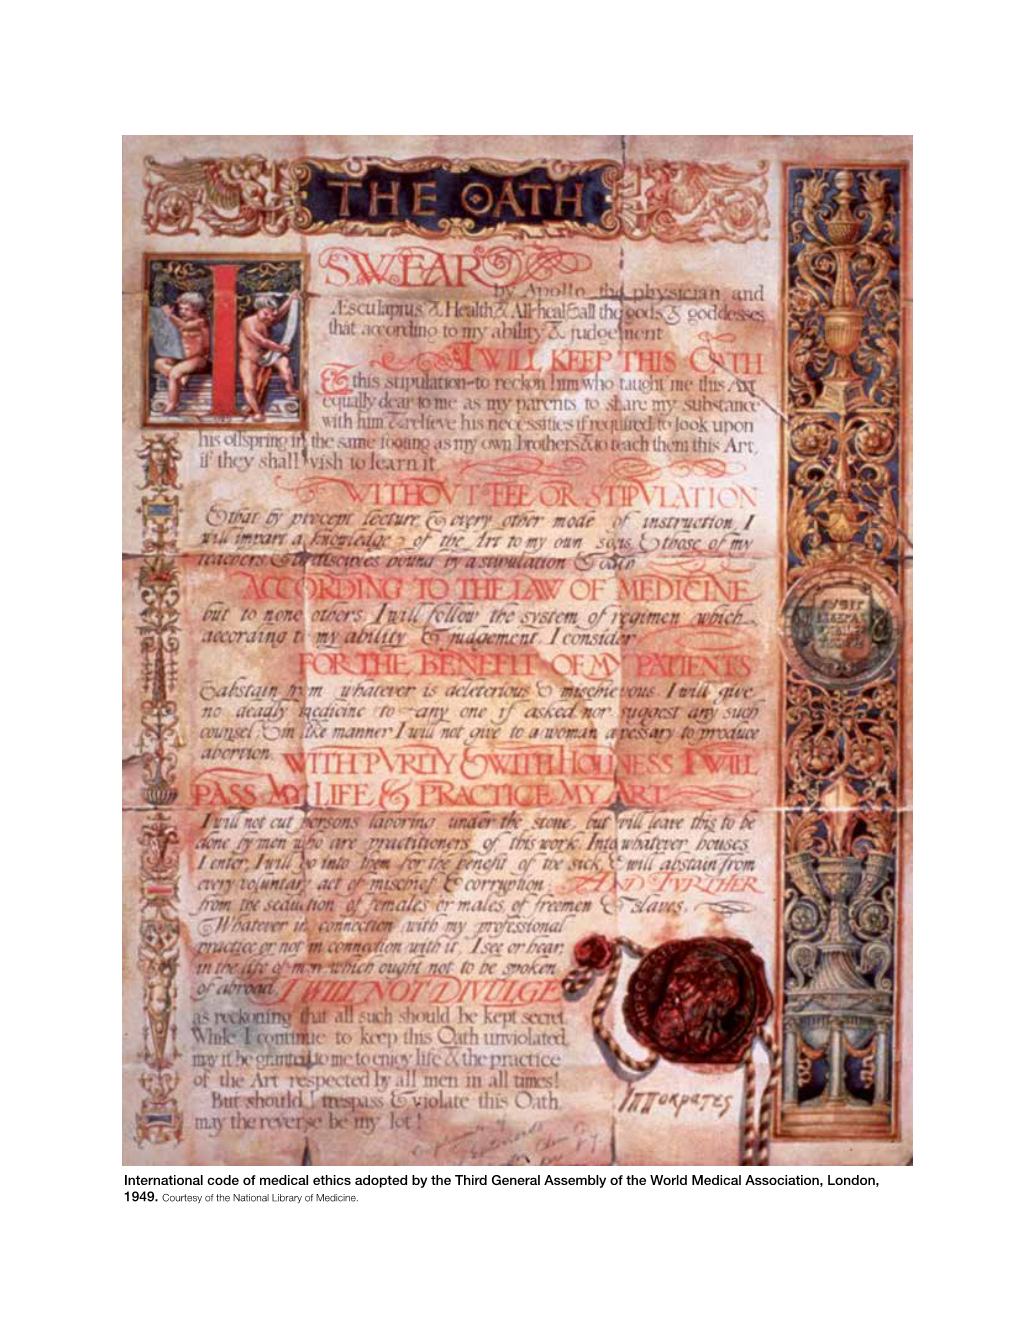 THE OATH
I SWEAR
by Apollo the physician and
Æsculapius & Health & All-heal & all the gods & goddesses
that according to my ability & judgement
I WILL KEEP THIS OATH
& this stipulation-to reckon him who taught me this Art
equally dear to me as my parents, to share my substance
with him & relieve his necessities if required, to look upon
his offspring in the same footing as my own brothers & to teach them this Art,
if they shall wish to learn it
WITHOVT FEE OR STIPVLATION
& that by precept, lecture, & every other mode of instruction, I
will impart a knowledge of the Art to my own sons, & those of my
teachers & to disciples bound by a stipulation & oath
ACCORDING TO THE LAW OF MEDICINE
but to none others. I will follow the system of regimen which,
according to my ability & judgement, I consider
FOR THE BENEFIT OF MY PATIENTS
& abstain from whatever is deleterious & mischievous. I will give
no deadly medicine to any one if asked, nor suggest any such
counsel, & in like manner I will not give to a woman a pessary to produce
abortion. WITH PVRITY & WITH HOLINESS I WILL
PASS MY LIFE & PRACTICE MY ART
I will not cut persons laboring under the stone, but will leave this to be
done by men who are practitioners of this work. Into whatever houses
I enter, I will go into them for the benefit of the sick, & will abstain from
every voluntary act of mischief & corruption; AND FVRTHER
from the seduction of females or males, of freemen & slaves.
Whatever in connection with my professional
practice or not in connection with it, I see or hear,
in the life of men which ought not to be spoken
of abroad, I WILL NOT DIVULGE
as reckoning that all such should be kept secret.
While I continue to keep this Oath unviolated,
may it be granted to me to enjoy life & the practice
of the Art respected by all men in all times!
But should I trespass & violate this Oath,
may the reverse be my lot!
Ιπποκρατες
International code of medical ethics adopted by the Third General Assembly of the World Medical Association, London,
1949. Courtesy of the National Library of Medicine.